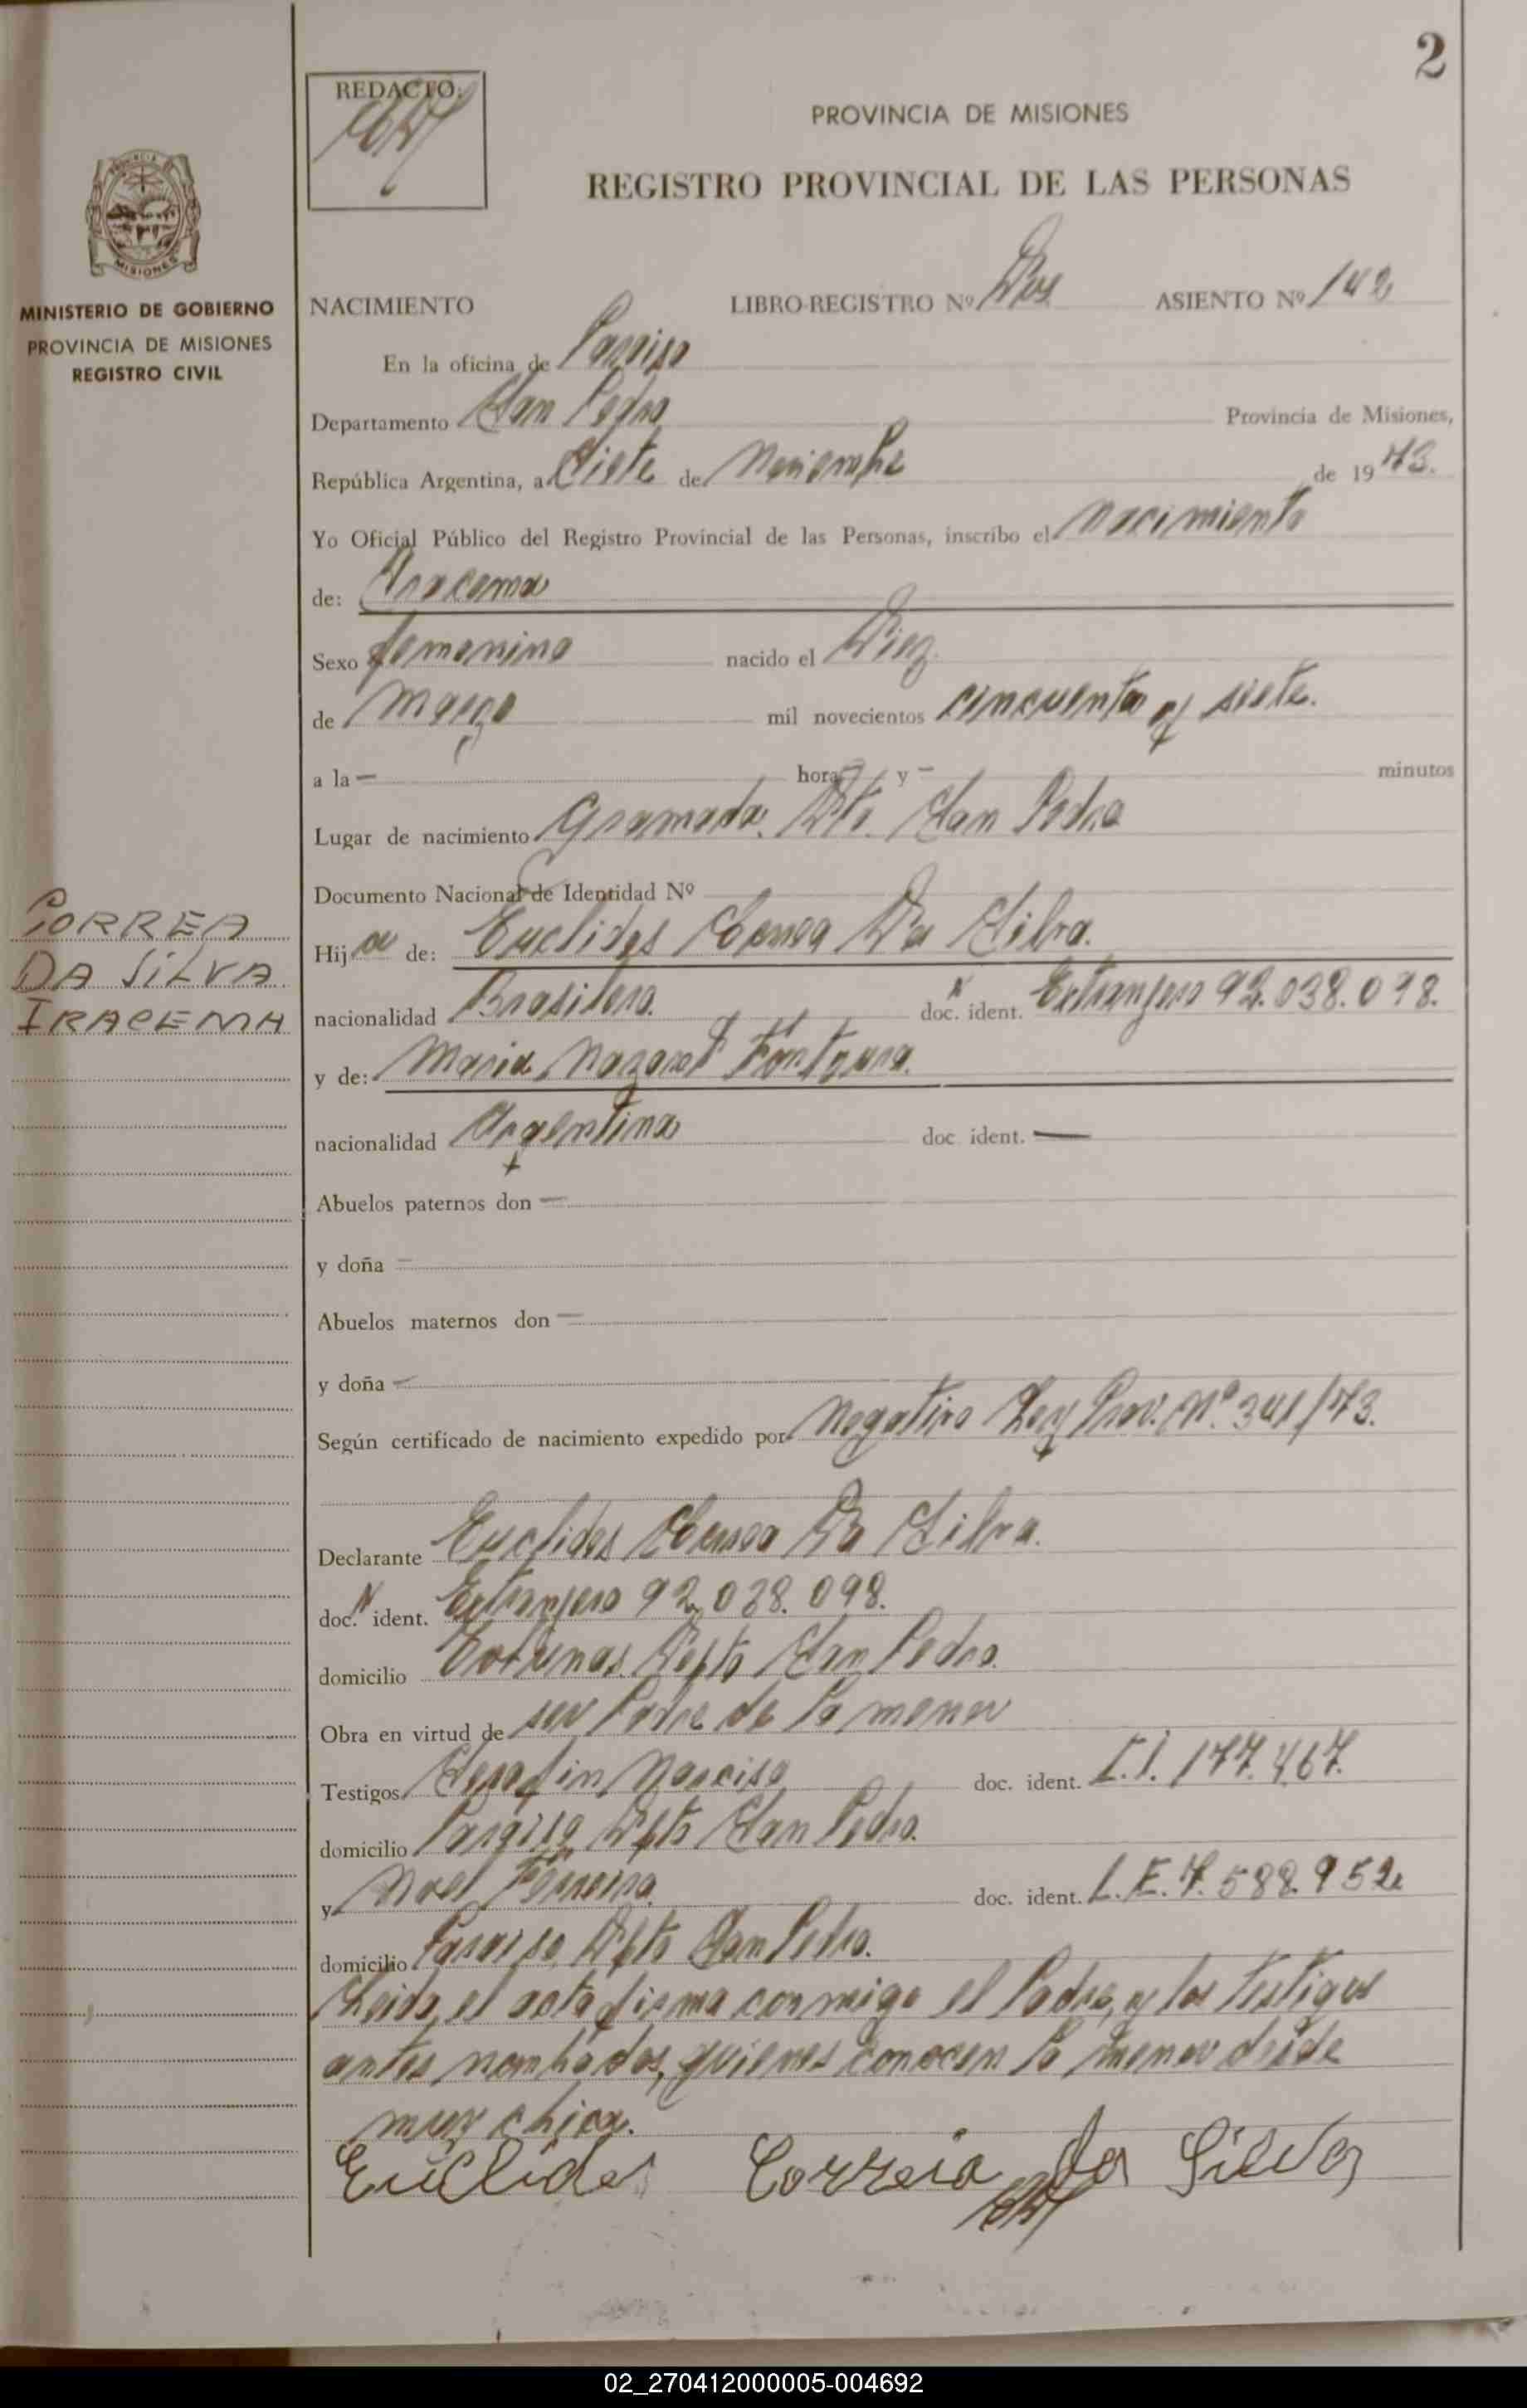 2
REDACTO:
PROVINCIA DE MISIONES
REGISTRO PROVINCIAL DE LAS PERSONAS
MISIONES
MINISTERIO DE GOBIERNO
PROVINCIA DE MISIONES
REGISTRO CIVIL
NACIMIENTO LIBRO-REGISTRO Nº Dos ASIENTO Nº 142
En la oficina de Paraiso
Departamento San Pedro Provincia de Misiones,
República Argentina, a Siete de Noviembre de 1973.
Yo Oficial Público del Registro Provincial de las Personas, inscribo el Nacimiento
de: Iracema
Sexo femenino nacido el Diez
de Marzo mil novecientos cincuenta y siete.
a la — hora y — minutos
Lugar de nacimiento Gramado. Dto. San Pedro
Documento Nacional de Identidad Nº
CORREA
DA SILVA
IRACEMA
Hija de: Euclides Correa Da Silva.
nacionalidad Brasilera. doc. N ident. Extranjero 92.038.098.
y de: Maria Nazaret Fontoura.
nacionalidad Argentina doc ident. —
Abuelos paternos don —
y doña —
Abuelos maternos don —
y doña —
Según certificado de nacimiento expedido por Negativo Ley Prov. Nº 341/73.
Declarante Euclides Correa Da Silva.
doc. N ident. Extranjero 92.038.098.
domicilio Depto San Pedro.
Obra en virtud de ser Padre de la menor
Testigos Serafin Narciso doc. ident. C.I. 177.467.
domicilio Paraiso Dpto San Pedro.
y Noel Ferreira. doc. ident. L.E. 7.588.952
domicilio Paraiso Dpto San Pedro.
Leida el acta firma conmigo el Padre, y los testigos
antes nombados, quienes conocen la menor desde
muy chica.
Euclides Correia da Silva
02_270412000005-004692